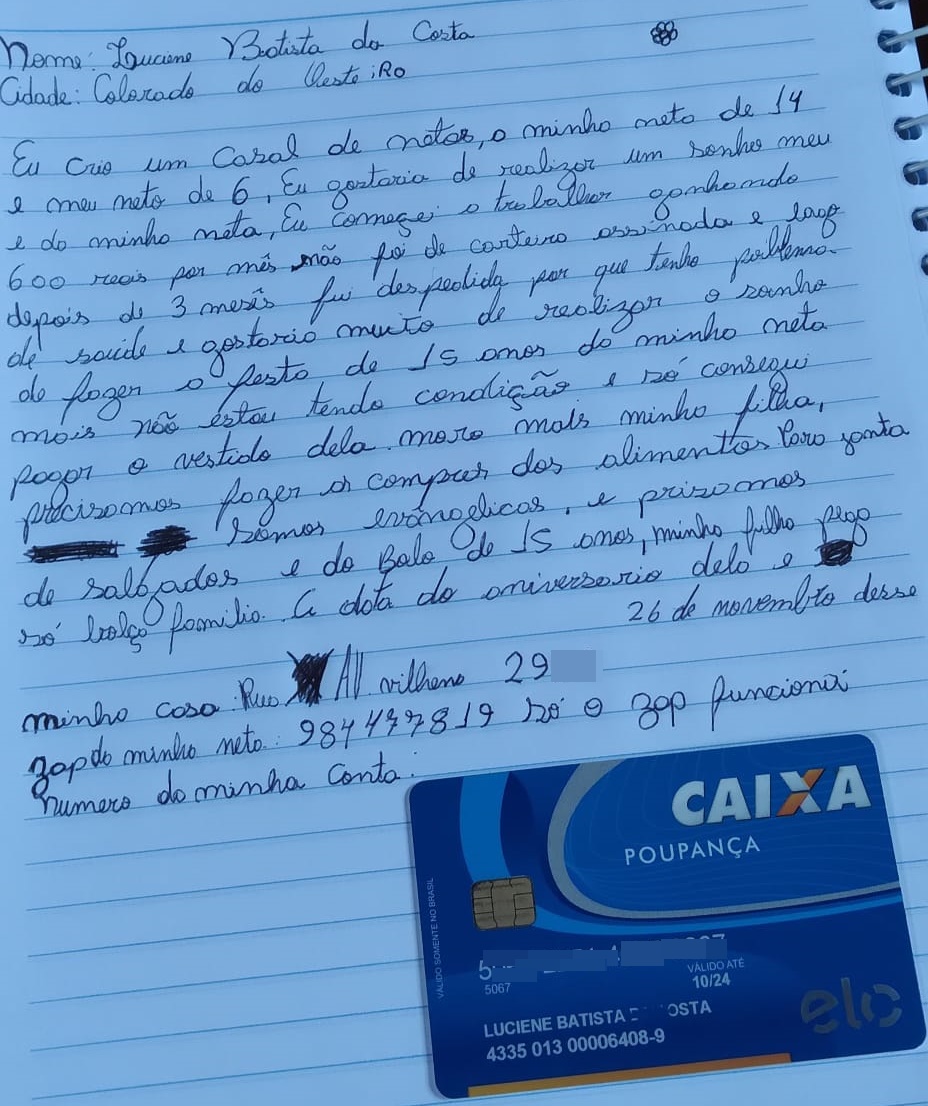 Nome: Luciene Batista da Costa
Cidade: Colorado do Oeste; Ro
Eu Crio um Casal de netos, o minho neto de 14
e meu neto de 6, Eu gostaria de realizar um sonho meu
e do minho neta, Eu começei o trabalhar ganhando
600 reais por mês não foi de carteira assinada e logo
depois de 3 mesês fui despedida por que tenho poblema
de saúde e gostario muito de realizar o sonho
do fazer o festa de 15 anos do minho neta
mais não estou tendo condição e só consegui
pagar o vestido dela. moro mais minho filha,
precisamos fazer as compras dos alimentos Para janta
Somos evângelicos, e prizamos
de salgados e do Bolo de 15 anos, minho filho pego
só bolço familio. A data do aniversario delo e
26 de novembro desse
minho casa: Rua AV. vilheno 29
zap do minho neto: 984477819 só o zap funciona
numero do minha Conta:
CAIXA
POUPANÇA
VÁLIDO SOMENTE NO BRASIL
5067
VÁLIDO ATÉ
10/24
LUCIENE BATISTA OSTA
4335 013 00006408-9
elo